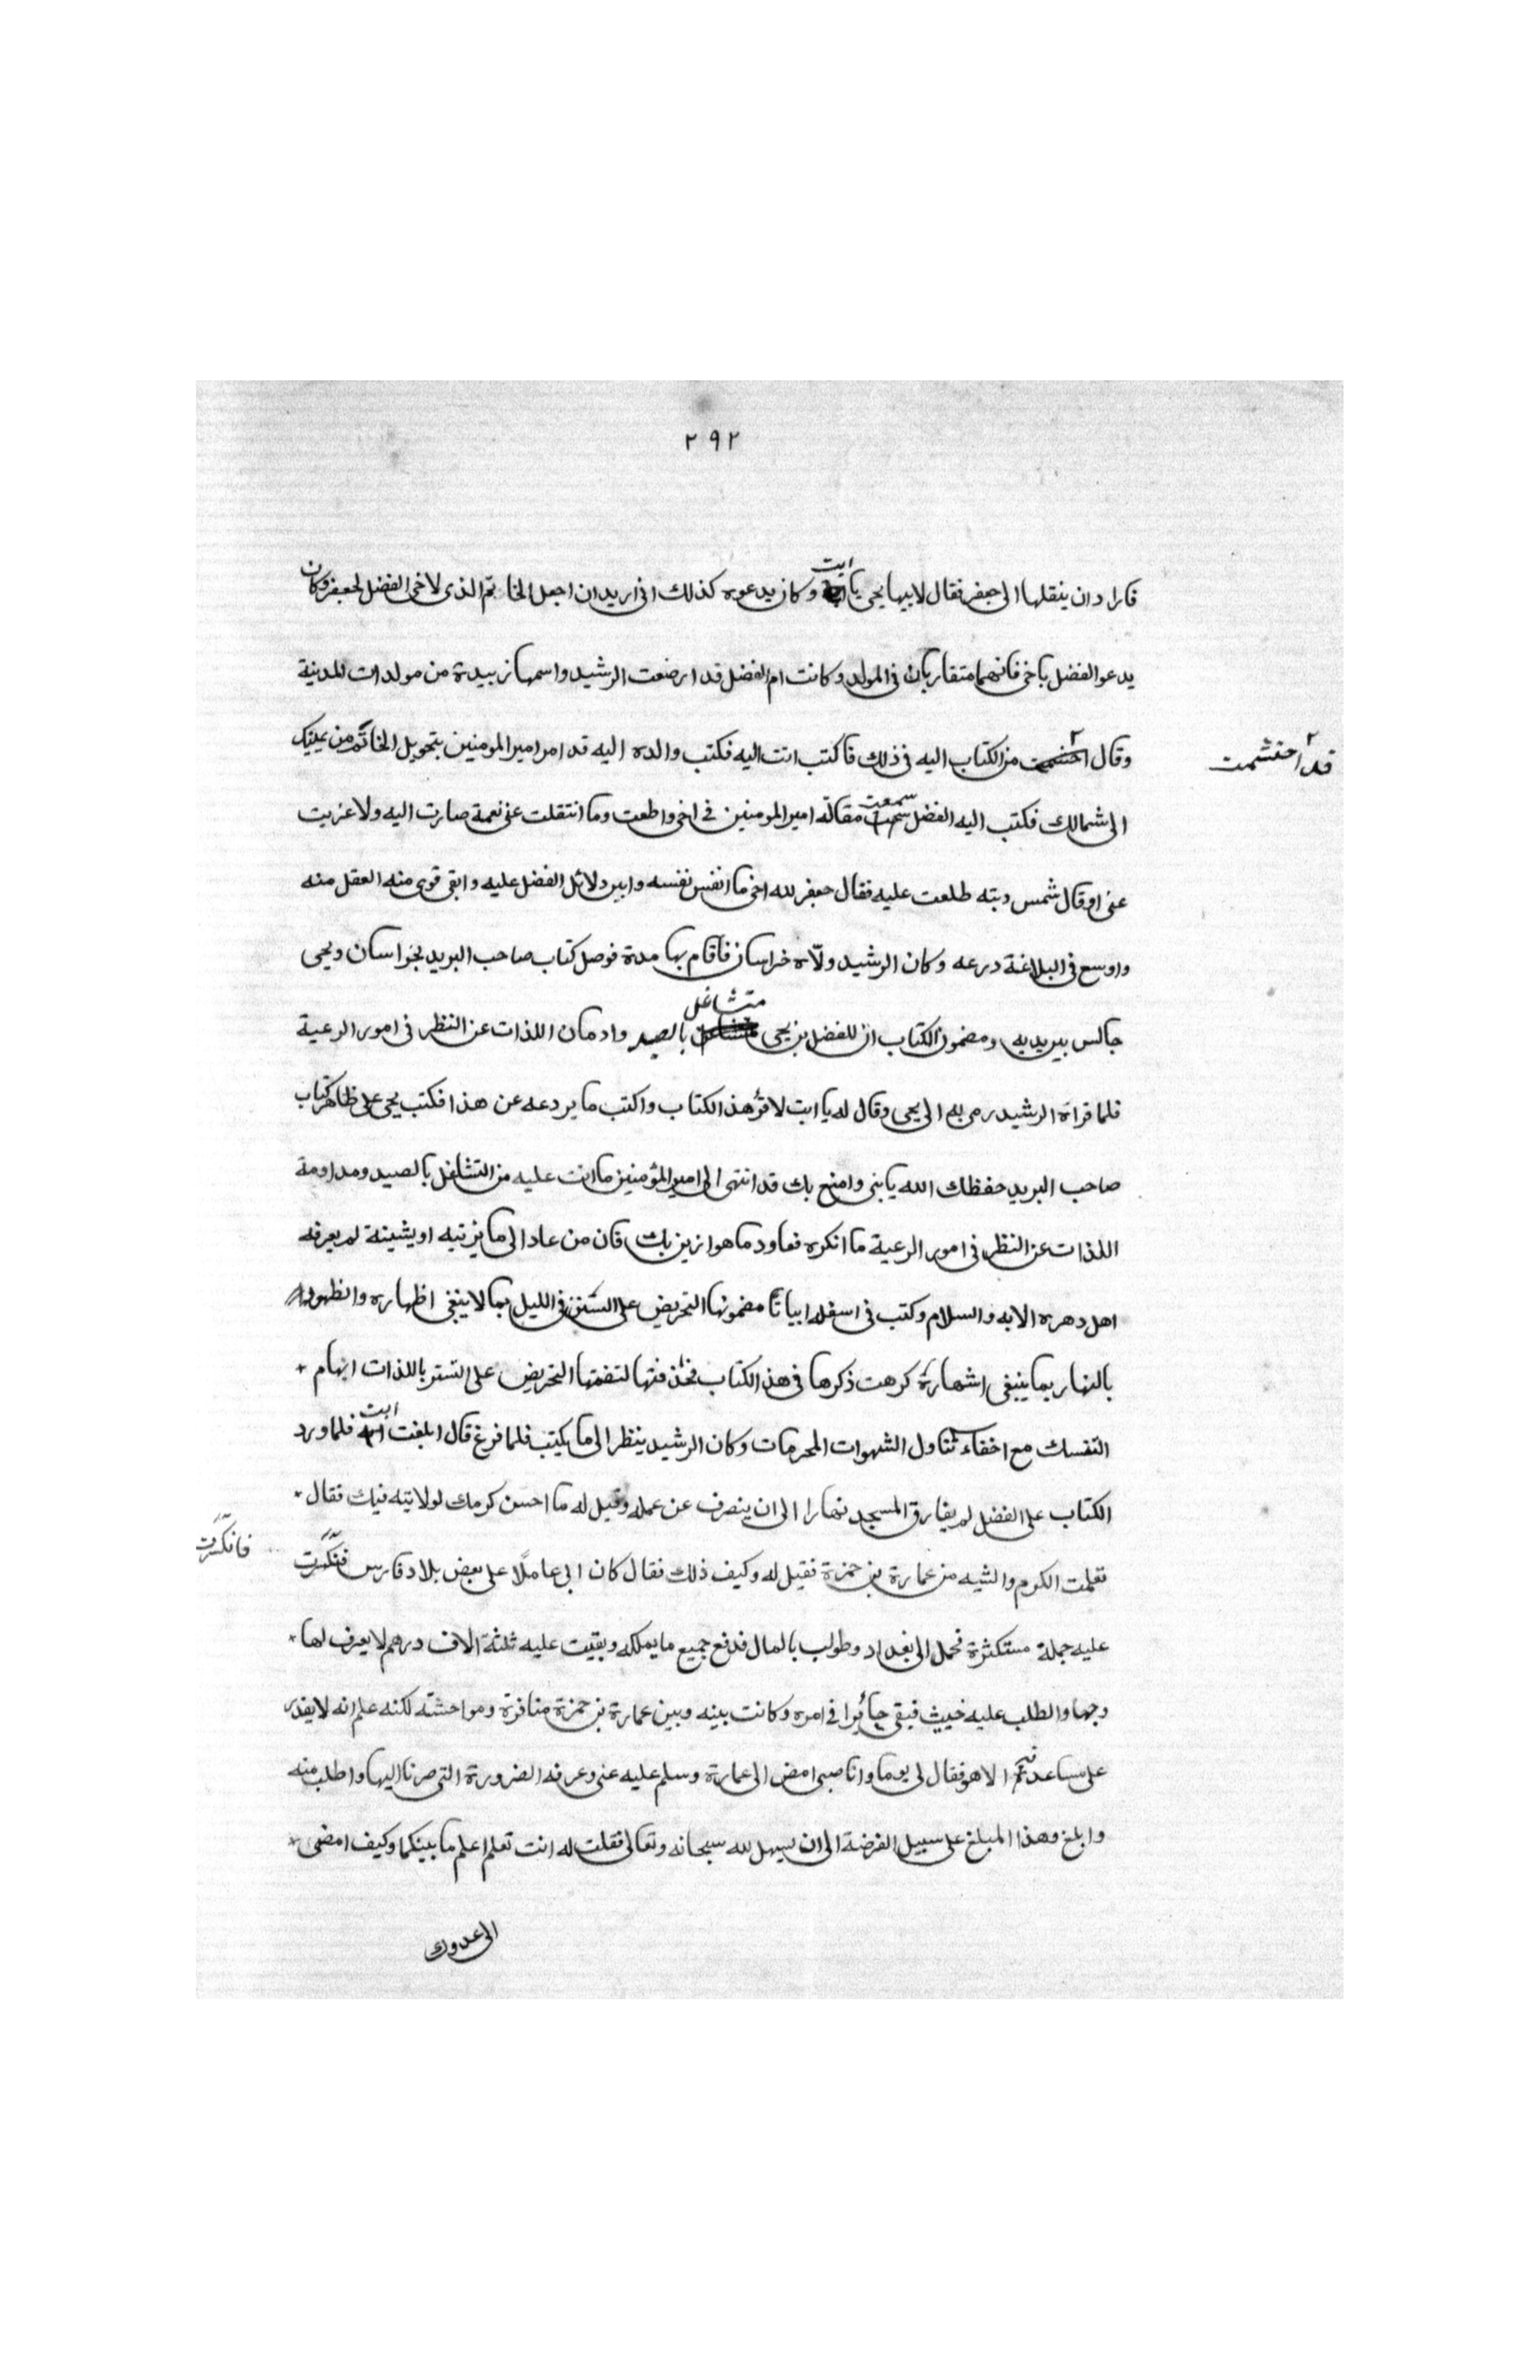 ٢٩٢
فاراد ان ينقلها الى جعفر فقال لابيها يحيى يا ابت وكان يدعوه كذلك انى اريد ان اجعل الخاتم الذى لاخى الفضل لجعفر وكان
يدعو الفضل باخى فانهما متقاربان فى المولد وكانت ام الفضل قد ارضعت الرشيد واسمها زبيدة من مولدات المدينة
وقال احتشمت من الكتاب اليه فى ذلك فاكتب انت اليه فكتب والده اليه قد امر امير المومنين بتحويل الخاتم من يمينك
قد احتشمت
الى شمالك فكتب اليه الفضل سمعت مقالة امير المومنين فى اخى واطعت وما انتقلت عنى نعمة صارت اليه ولا غربت
عنى او قال شمس رتبته طلعت عليه فقال جعفر لله اخى ما انفس نفسه وابين دلائل الفضل عليه وابقى قوى منه العقل منه
واوسع فى البلاغة درعه وكان الرشيد ولّاه خراسان فاقام بها مدة فوصل كتاب صاحب البريد بخراسان ويحيى
جالس بين يديه ومضمون الكتاب ان للفضل بن يحيى متشاغل بالصيد وادمان اللذات عن النظر فى امور الرعية
فلما قراه الرشيد رمى به الى يحيى وقال له يا ابت لاقرؤ هذا الكتاب واكتب ما يردعه عن هذا فكتب يحيى على ظاهر كتاب
صاحب البريد حفظك الله يا بنى وامتع بك قد انتهى الى امير المؤمنين ما انت عليه من التشاغل بالصيد ومداومة
اللذات عن النظر فى امور الرعية ما انكره فعاود ما هو ازين بك فان من عاد الى ما يزينه او يشينه لم يعرفه
اهل دهره الا به والسلام وكتب فى اسفله ابياتا مضمونها التحريض على التستر فى الليل بما لا ينبغى اظهاره والظهور
بالنهار بما ينبغى اشهاره كرهت ذكرها فى هذا الكتاب فحذفتها لتضمنها التحريض على التستر باللذات ايهام
التنسك مع اخفاء تناول الشهوات المحرمات وكان الرشيد ينظر الى ما يكتب فلما فرغ قال ابلغت ابت فلما ورد
الكتاب على الفضل لم يفارق المسجد نهارا الى ان ينصرف عن عمله وقيل له ما احسن كرمك لولا تيه فيك فقال
تعلمت الكرم والتيه من عمارة بن حمزة فقيل له وكيف ذلك فقال كان ابى عاملًا على بعض بلاد فارس فتكسّرت
فانكسرت
عليه جملة مستكثرة فحمل الى بغداد وطولب بالمال فدفع جميع ما يملكه وبقيت عليه ثلثة الاف درهم لا يعرف لها
وجها والطلب عليه خبيث فبقى حائرا فى امره وكانت بينه وبين عمارة بن حمزة منافرة ومواحشة لكنه علم انه لا يقدر
على مساعدته الا هو فقال لى يوما وانا صبى امض الى عمارة وسلم عليه عنى وعرفه الضرورة التى صرنا اليها واطلب منه
وابلغ وهذا المبلغ على سبيل القرضة الى ان يسهل لله سبحانه وتعالى فقلت له انت تعلم اعلم ما بينكما وكيف امضى
الى عدوك